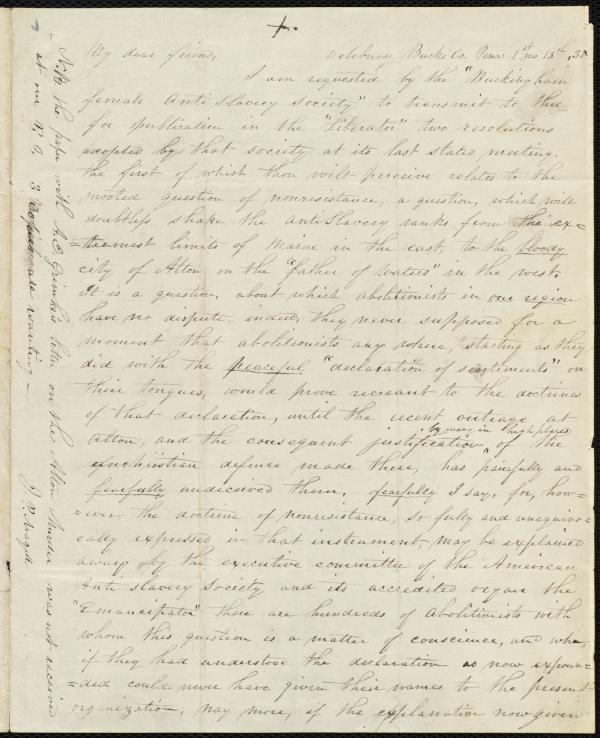 My dear friend, Solebury Bucks Co. Penna. 1st mo. 13th, 38
I am requested by the "Buckingham
female Anti Slavery Society" to transmit to thee
for publication in the "Liberator" two resolutions
adopted by that society at its last stated meeting.
the first of which thou wilt perceive relates to the
mooted question of nonresistance, a question, which will
doubtless, shake the AntiSlavery ranks from the ex=
=thermest limits of Maine in the east, to the bloody
city of Alton on the "father of waters" in the west.
It is a question, about which abolitionists in our region
have no dispute. indeed, they never supposed for a
moment that abolitionists any where, starting as they
did with the peaceful "declaration of sentiments" on
their tongues, would prove recreant to the doctrines
of that declaration, until the recent outrage at
Alton, and the consequent justification by many in high places, of the
unchristian defence made there, has painfully and
fearfully undeceived them. fearfully I say, for, how=
=ever the doctrine of nonresistance, so fully and unequivo=
cally expressed in that instrument, may be explained
away by the executive committee of the American
Anti slavery society and its accredited organ the
"Emancipator" there are hundreds of abolitionists with
whom this question is a matter of conscience, and who,
if they had understood the declaration as now expoun=
=ded could never have given their names to the present
organization, nay more, if the explanation now given
N.B. the paper with A. E. Grimke's letter on the Alton Murder was not received
at our P. O. 3 copies are wanting—
J. P. Magill